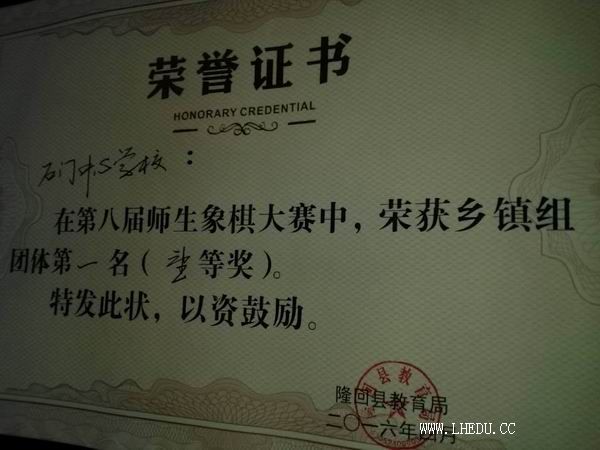 荣誉证书
HONORARY CREDENTIAL
石门中心学校：
在第八届师生象棋大赛中，荣获乡镇组
团体第一名（壹等奖）。
特发此状，以资鼓励。
隆回县教育局
二〇一六年四月
WWW.LHEDU.CC